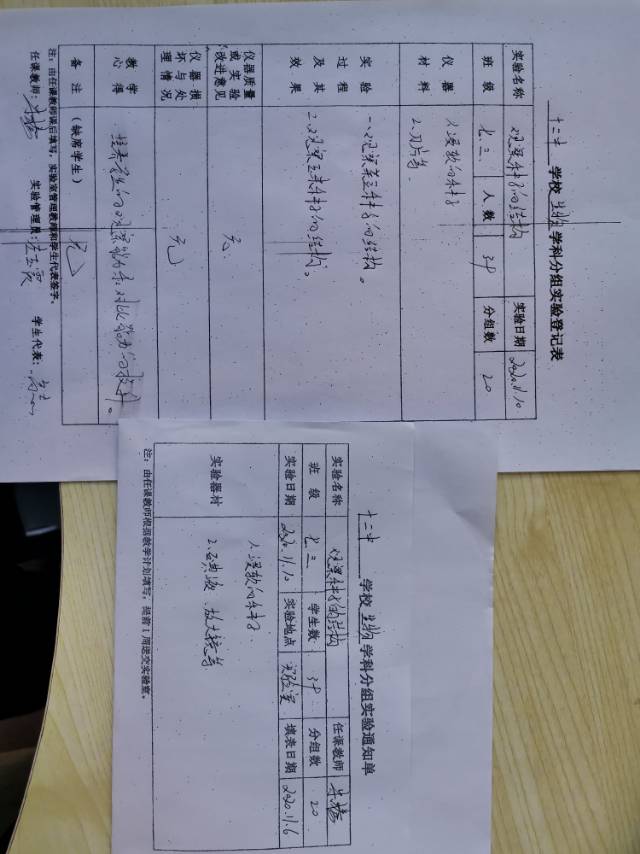 十二中 学校 生物 学科分组实验登记表
实验名称 观察种子的结构 实验日期 2020.11.10
班级 七三 人数 39 分组数 20
仪器材料 1、浸软的种子
2、刀片等
实验过程及其效果 一、观察菜豆种子的结构。
二、观察玉米种子的结构。
仪器质量或实验改进意见 无
仪器损坏与处理情况 无
教学心得 培养学生的观察能力和对比能力的提升。
备注 (缺席学生) 无
注：由任课教师课后填写，实验室管组教师和学生代表签字。
任课教师： 实验管理员： 学生代表：
十二中 学校 生物 学科分组实验通知单
实验名称 观察种子的结构 任课教师
班级 七三 学生数 39 分组数 20
实验日期 2020.11.10 实验地点 实验室 填表日期 2020.11.6
实验器材 1、浸软的种子
2、碘液、放大镜等
注：由任课教师根据教学计划填写，提前1周送交实验室。